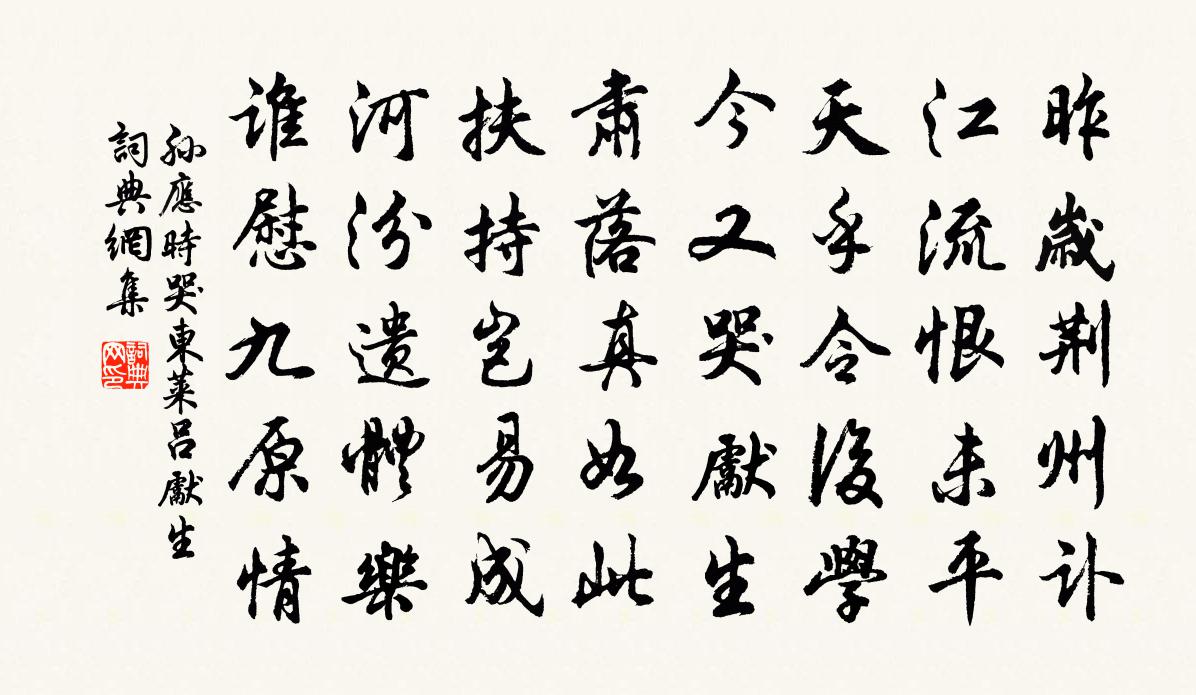 昨歲荆州訃
江流恨未平
天乎令後學
今又哭獻生
肅落真如此
扶持豈易成
河汾遺體樂
誰慰九原情
孫應時哭東萊呂獻生
詞典網集
詞典网印